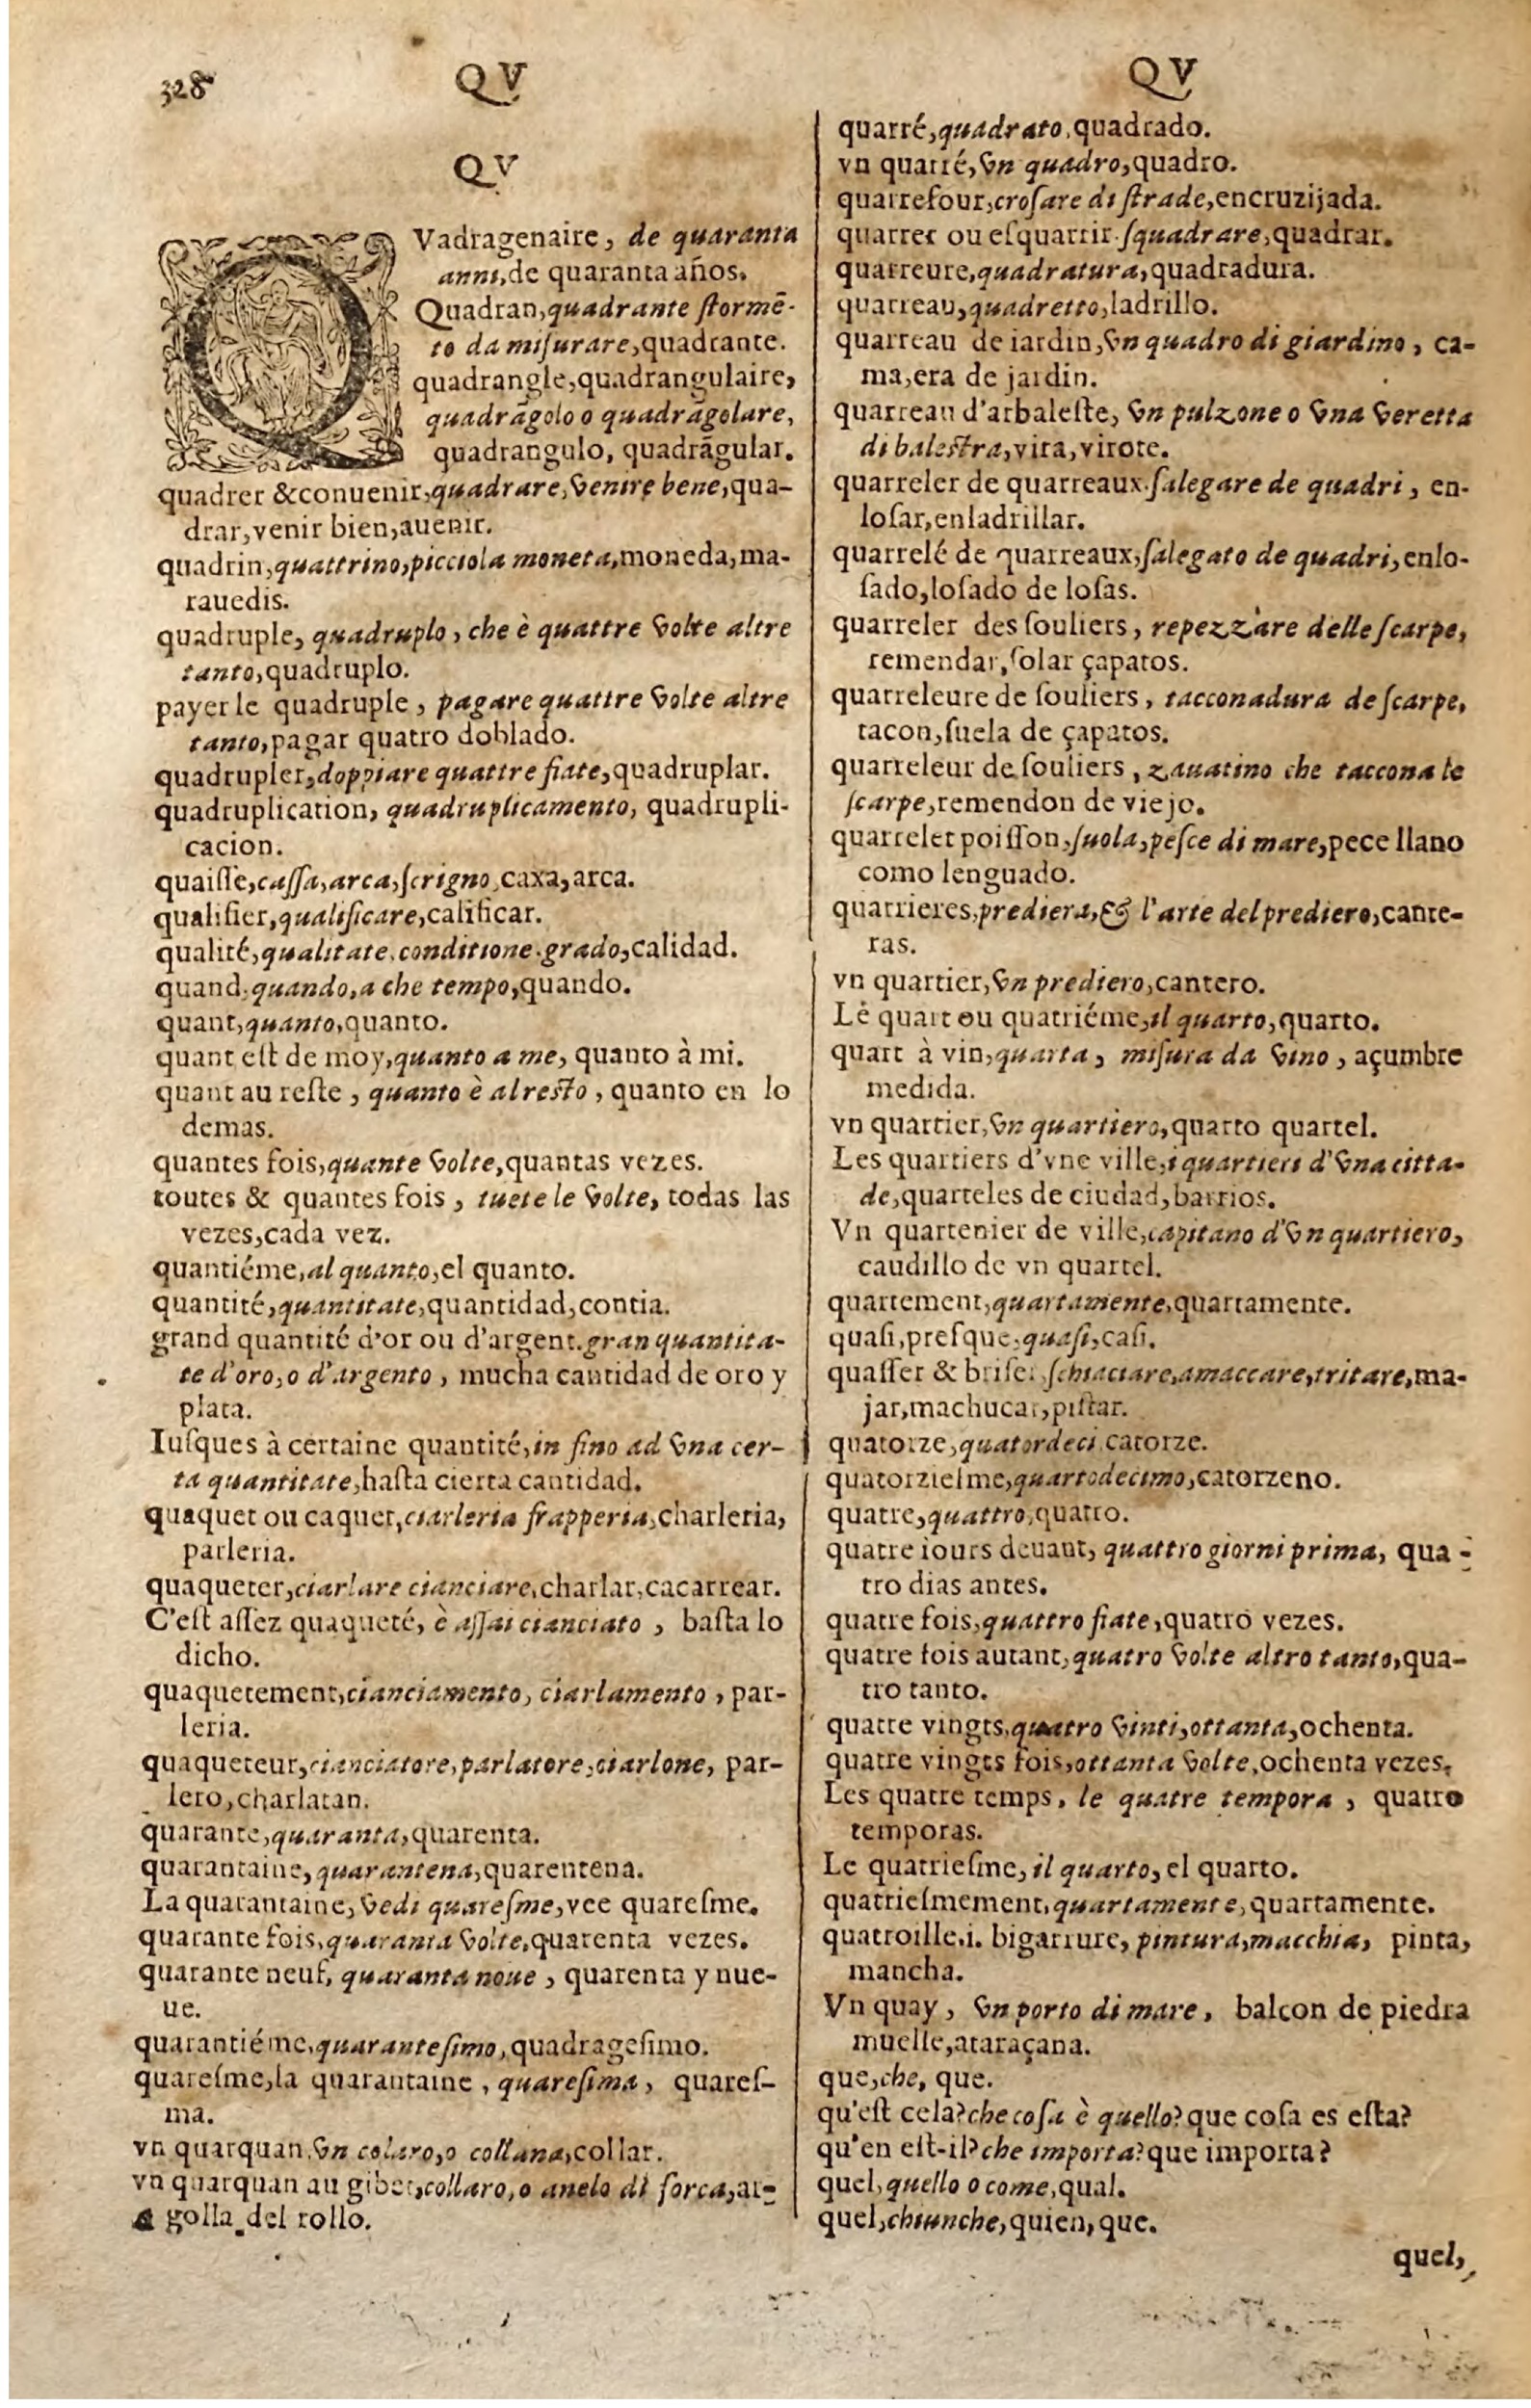 328
QV
QV
QVadragenaire, de quaranta
anni, de quaranta años.
Quadran, quadrante stormẽ-
to da misurare, quadrante.
quadrangle, quadrangulaire,
quadrãgolo o quadrãgolare,
quadrangulo, quadrãgular.
quadrer & conuenir, quadrare, venire bene, qua-
drar, venir bien, auenir.
quadrin, quattrino, picciola moneta, moneda, ma-
rauedis.
quadruple, quadruplo, che è quattre volte altre
tanto, quadruplo.
payer le quadruple, pagare quattre volte altre
tanto, pagar quatro doblado.
quadrupler, doppiare quattre fiate, quadruplar.
quadruplication, quadruplicamento, quadrupli-
cacion.
quaisse, cassa, arca, scrigno, caxa, arca.
qualifier, qualificare, calificar.
qualité, qualitate, conditione, grado, calidad.
quand, quando, a che tempo, quando.
quant, quanto, quanto.
quant est de moy, quanto a me, quanto à mi.
quant au reste, quanto è al resto, quanto en lo
demas.
quantes fois, quante volte, quantas vezes.
toutes & quantes fois, tuete le volte, todas las
vezes, cada vez.
quantiéme, al quanto, el quanto.
quantité, quantitate, quantidad, contia.
grand quantité d'or ou d'argent. gran quantita-
te d'oro, o d'argento, mucha cantidad de oro y
plata.
Iusques à certaine quantité, in fino ad vna cer-
ta quantitate, hasta cierta cantidad.
quaquet ou caquet, ciarleria frapperia, charleria,
parleria.
quaqueter, ciarlare cianciare, charlar, cacarrear.
C'est assez quaqueté, è assai cianciato, basta lo
dicho.
quaquetement, cianciamento, ciarlamento, par-
leria.
quaqueteur, cianciatore, parlatore, ciarlone, par-
lero, charlatan.
quarante, quaranta, quarenta.
quarantaine, quarantena, quarentena.
La quarantaine, vedi quaresme, vee quaresme.
quarante fois, quaranta volte, quarenta vezes.
quarante neuf, quaranta noue, quarenta y nue-
ue.
quarantiéme, quarantesimo, quadragesimo.
quaresme, la quarantaine, quaresima, quares-
ma.
vn quarquan, vn colaro, o collana, collar.
vn quarquan au gibet, collaro, o anelo di forca, ar-
golla del rollo.
QV
quarré, quadrato, quadrado.
vn quarré, vn quadro, quadro.
quarrefour, crosare di strade, encruzijada.
quarrer ou esquarrir. squadrare, quadrar.
quarreure, quadratura, quadradura.
quarreau, quadretto, ladrillo.
quarreau de iardin, vn quadro di giardino, ca-
ma, era de jardin.
quarreau d'arbaleste, vn pulzone o vna veretta
di balestra, vira, virote.
quarreler de quarreaux. salegare de quadri, en-
losar, enladrillar.
quarrelé de quarreaux, salegato de quadri, enlo-
sado, losado de losas.
quarreler des souliers, repezzàre delle scarpe,
remendar, solar çapatos.
quarreleure de souliers, tacconadura de scarpe,
tacon, suela de çapatos.
quarreleur de souliers, zauatino che taccona le
scarpe, remendon de viejo.
quarrelet poisson, suola, pesce di mare, pece llano
como lenguado.
quarrieres, prediera, & l'arte del prediero, cante-
ras.
vn quartier, vn prediero, cantero.
Le quart ou quatriéme, il quarto, quarto.
quart à vin, quarta, misura da vino, açumbre
medida.
vn quartier, vn quartiero, quarto quartel.
Les quartiers d'vne ville, i quartieri d'vna citta-
de, quarteles de ciudad, barrios.
Vn quartenier de ville, capitano d'vn quartiero,
caudillo de vn quartel.
quartement, quartamente, quartamente.
quasi, presque, quasi, casi.
quasser & briser, schiaciare, amaccare, tritare, ma-
jar, machucar, pistar.
quatorze, quatordeci, catorze.
quatorziesme, quartodecimo, catorzeno.
quatre, quattro, quatro.
quatre iours deuant, quattro giorni prima, qua-
tro dias antes.
quatre fois, quattro fiate, quatro vezes.
quatre fois autant, quatro volte altro tanto, qua-
tro tanto.
quatre vingts, quatro vinti, ottanta, ochenta.
quatre vingts fois, ottanta volte, ochenta vezes.
Les quatre temps, le quatre tempora, quatro
temporas.
Le quatriesme, il quarto, el quarto.
quatriesmement, quartamente, quartamente.
quatroille. i. bigarrure, pintura, macchia, pinta,
mancha.
Vn quay, vn porto di mare, balcon de piedra
muelle, ataraçana.
que, che, que.
qu'est cela? che cosa è quello? que cosa es esta?
qu'en est-il? che importa? que importa?
quel, quello o come, qual.
quel, chiunche, quien, que.
quel,